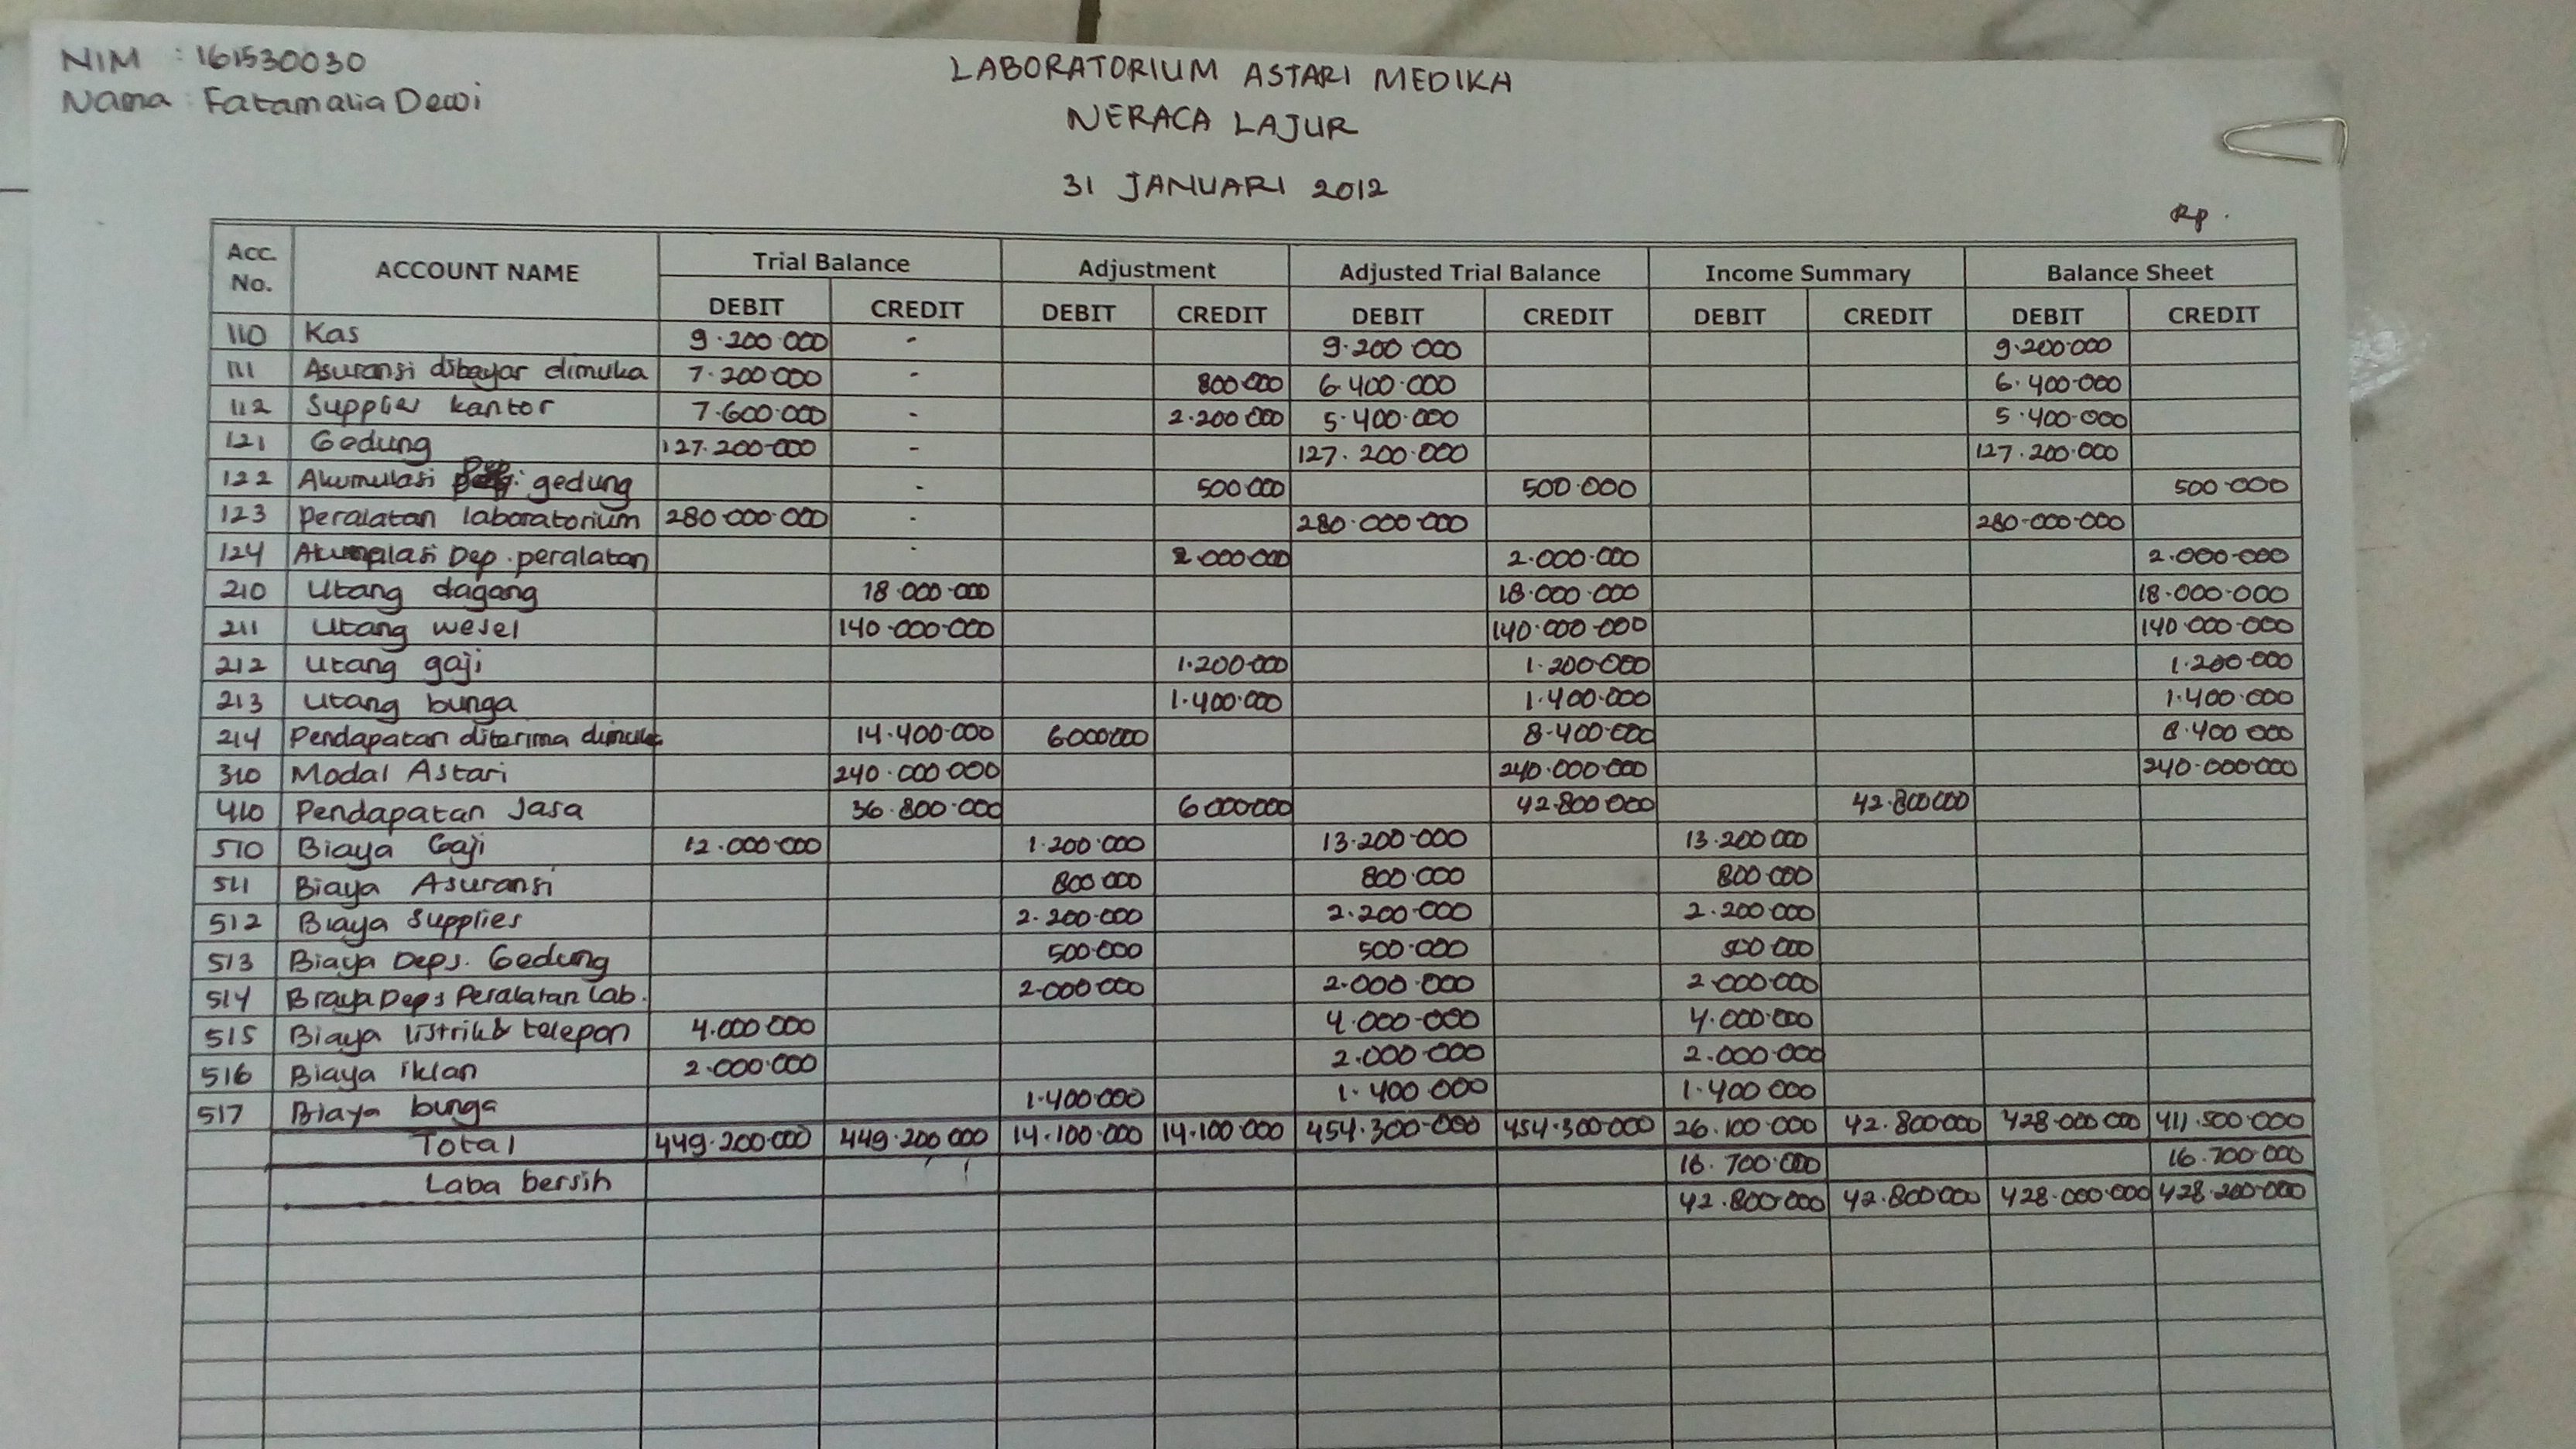 NIM : 161530030
Nama : Fatamalia Dewi
LABORATORIUM ASTARI MEDIKA
NERACA LAJUR
31 JANUARI 2012
Rp.
Acc. No. ACCOUNT NAME Trial Balance Adjustment Adjusted Trial Balance Income Summary Balance Sheet
DEBIT CREDIT DEBIT CREDIT DEBIT CREDIT DEBIT CREDIT DEBIT CREDIT
110 Kas 9.200.000 - 9.200.000 9.200.000
111 Asuransi dibayar dimuka 7.200.000 - 800.000 6.400.000 6.400.000
112 Supplies kantor 7.600.000 - 2.200.000 5.400.000 5.400.000
121 Gedung 127.200.000 - 127.200.000 127.200.000
122 Akumulasi Dep. gedung - 500.000 500.000 500.000
123 peralatan laboratorium 280.000.000 - 280.000.000 280.000.000
124 Akumulasi Dep. peralatan - 2.000.000 2.000.000 2.000.000
210 Utang dagang 18.000.000 18.000.000 18.000.000
211 Utang wesel 140.000.000 140.000.000 140.000.000
212 Utang gaji 1.200.000 1.200.000 1.200.000
213 Utang bunga 1.400.000 1.400.000 1.400.000
214 Pendapatan diterima dimuka 14.400.000 6000000 8.400.000 8.400.000
310 Modal Astari 240.000.000 240.000.000 240.000.000
410 Pendapatan Jasa 36.800.000 6000000 42.800.000 42.800.000
510 Biaya Gaji 12.000.000 1.200.000 13.200.000 13.200.000
511 Biaya Asuransi 800.000 800.000 800.000
512 Biaya Supplies 2.200.000 2.200.000 2.200.000
513 Biaya Deps. Gedung 500.000 500.000 500.000
514 Biaya Deps Peralatan Lab. 2.000.000 2.000.000 2.000.000
515 Biaya listrik & telepon 4.000.000 4.000.000 4.000.000
516 Biaya iklan 2.000.000 2.000.000 2.000.000
517 Biaya bunga 1.400.000 1.400.000 1.400.000
Total 449.200.000 449.200.000 14.100.000 14.100.000 454.300.000 454.300.000 26.100.000 42.800.000 428.000.000 411.500.000
Laba bersih 16.700.000 16.700.000
42.800.000 42.800.000 428.000.000 428.200.000